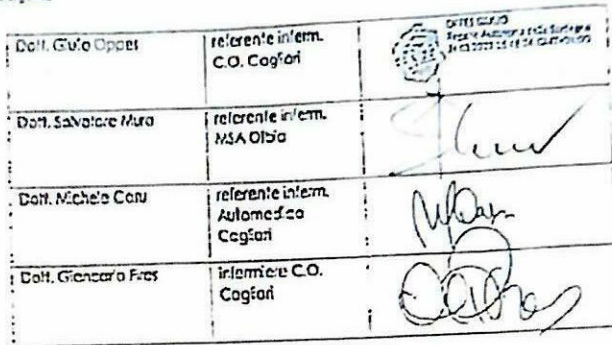 Dott. Giulio Oppes
referente inferm.
C.O. Cagliari
OPPES GIULIO
Regione Autonoma della Sardegna
Dott. Salvatore Mura
referente inferm.
MSA Olbia
Dott. Michele Caru
referente inferm.
Automedica
Cagliari
Dott. Giancarlo Fires
infermiere C.O.
Cagliari